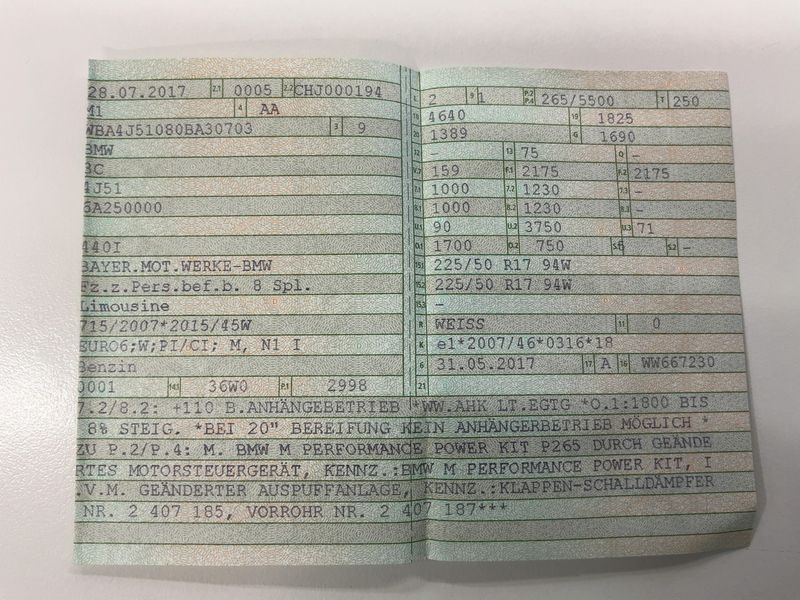 28.07.2017 2.1 0005 2.2 CHJ000194
M1 4 AA
WBA4J51080BA30703 3 9
BMW
3C
4J51
6A250000
440I
BAYER.MOT.WERKE-BMW
Fz.z.Pers.bef.b. 8 Spl.
Limousine
715/2007*2015/45W
EURO6;W;PI/CI; M, N1 I
Benzin
0001 14.1 36W0 P.1 2998
L 2 9 1 P.2 P.4 265/5500 T 250
18 4640 19 1825
20 1389 G 1690
12 – 13 75 Q –
V.7 159 F.1 2175 F.2 2175
7.1 1000 7.2 1230 7.3 –
8.1 1000 8.2 1230 8.3 –
U.1 90 U.2 3750 U.3 71
O.1 1700 O.2 750 S.1 5 S.2 –
15.1 225/50 R17 94W
15.2 225/50 R17 94W
15.3 –
R WEISS 11 0
K e1*2007/46*0316*18
6 31.05.2017 17 A 16 WW667230
21
7.2/8.2: +110 B.ANHÄNGEBETRIEB *WW.AHK LT.EGTG *O.1:1800 BIS
8% STEIG. *BEI 20" BEREIFUNG KEIN ANHÄNGERBETRIEB MÖGLICH *
ZU P.2/P.4: M. BMW M PERFORMANCE POWER KIT P265 DURCH GEÄNDE
RTES MOTORSTEUERGERÄT, KENNZ.:BMW M PERFORMANCE POWER KIT, I
.V.M. GEÄNDERTER AUSPUFFANLAGE, KENNZ.:KLAPPEN-SCHALLDÄMPFER
NR. 2 407 185, VORROHR NR. 2 407 187***